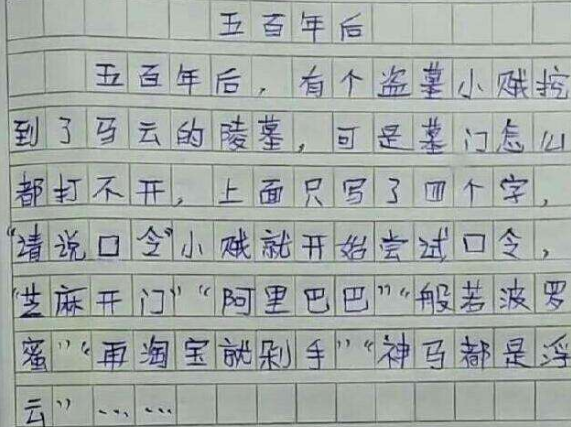 五百年后
五百年后，有个盗墓小贼挖
到了马云的陵墓，可是墓门怎么
都打不开，上面只写了四个字，
“请说口令”小贼就开始尝试口令，
“芝麻开门”“阿里巴巴”“般若波罗
蜜”“再淘宝就剁手”“神马都是浮
云”……